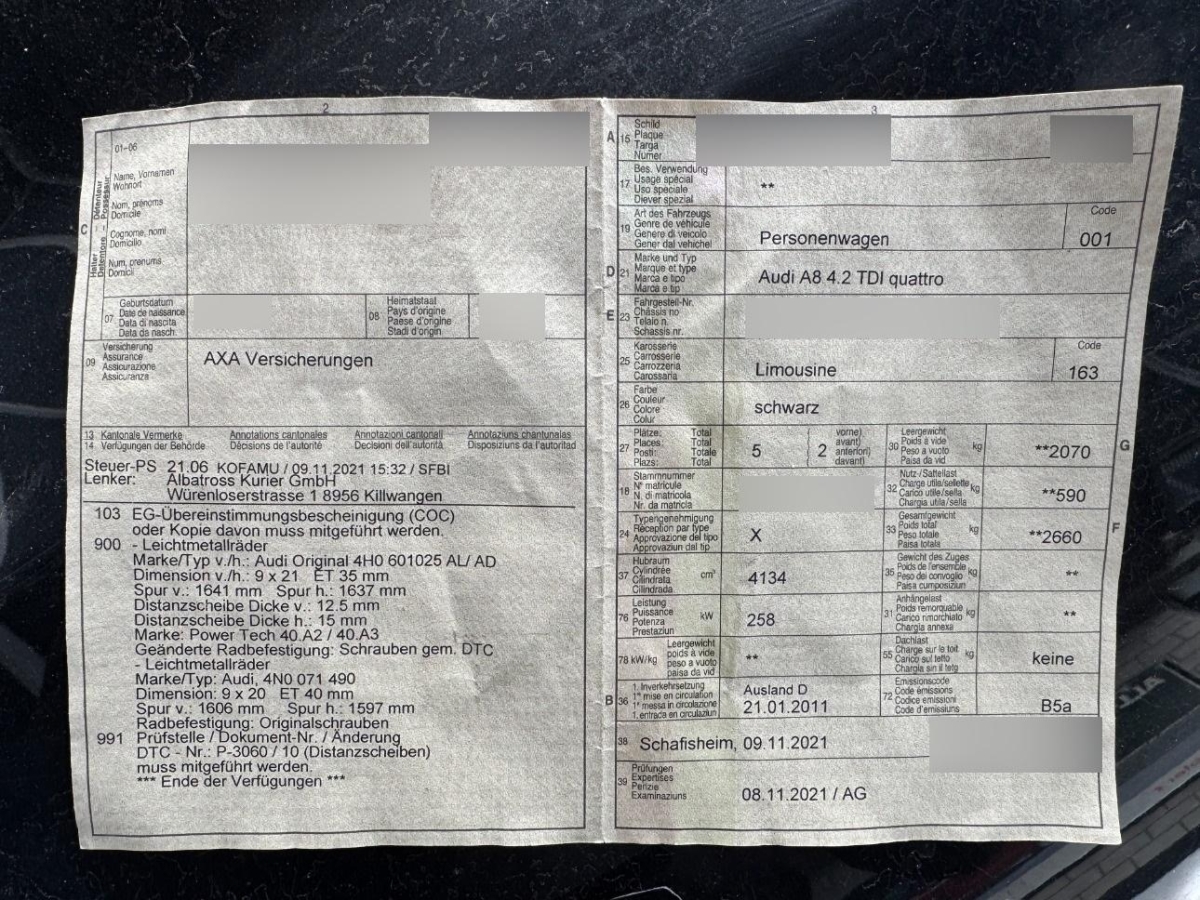 2
01-06
Name, Vornamen
Wohnort
Nom, prénoms
Domicile
Cognome, nomi
Domicilio
Num, prenums
Domicil
C
Halter - Détenteur
Detentore - Possessur
07 Geburtsdatum
Date de naissance
Data di nascita
Data da nasch.
08 Heimatstaat
Pays d'origine
Paese d'origine
Stadi d'origin
09 Versicherung
Assurance
Assicurazione
Assicuranza
AXA Versicherungen
13 Kantonale Vermerke Annotations cantonales Annotazioni cantonali Annotaziuns chantunalas
14 Verfügungen der Behörde Décisions de l'autorité Decisioni dell'autorità Disposiziuns da l'autoritad
Steuer-PS 21.06 KOFAMU / 09.11.2021 15:32 / SFBI
Lenker: Albatross Kurier GmbH
Würenloserstrasse 1 8956 Killwangen
103 EG-Übereinstimmungsbescheinigung (COC)
oder Kopie davon muss mitgeführt werden.
900 - Leichtmetallräder
Marke/Typ v./h.: Audi Original 4H0 601025 AL/ AD
Dimension v./h.: 9 x 21 ET 35 mm
Spur v.: 1641 mm Spur h.: 1637 mm
Distanzscheibe Dicke v.: 12.5 mm
Distanzscheibe Dicke h.: 15 mm
Marke: Power Tech 40.A2 / 40.A3
Geänderte Radbefestigung: Schrauben gem. DTC
- Leichtmetallräder
Marke/Typ: Audi, 4N0 071 490
Dimension: 9 x 20 ET 40 mm
Spur v.: 1606 mm Spur h.: 1597 mm
Radbefestigung: Originalschrauben
991 Prüfstelle / Dokument-Nr. / Änderung
DTC - Nr.: P-3060 / 10 (Distanzscheiben)
muss mitgeführt werden.
*** Ende der Verfügungen ***
3
A 15 Schild
Plaque
Targa
Numer
17 Bes. Verwendung
Usage spécial
Uso speciale
Diever spezial
**
19 Art des Fahrzeugs
Genre de véhicule
Genere di veicolo
Gener dal vehichel
Personenwagen
Code
001
D 21 Marke und Typ
Marque et type
Marca e tipo
Marca e tip
Audi A8 4.2 TDI quattro
E 23 Fahrgestell-Nr.
Châssis no
Telaio n.
Schassis nr.
25 Karosserie
Carrosserie
Carrozzeria
Carossaria
Limousine
Code
163
26 Farbe
Couleur
Colore
Colur
schwarz
27 Plätze: Total
Places: Total
Posti: Totale
Plazs: Total
5
2
vorne)
avant)
anteriori)
davant)
30 Leergewicht
Poids à vide
Peso a vuoto
Paisa da vid
kg
**2070
G
18 Stammnummer
N° matricule
N. di matricola
Nr. da matricla
32 Nutz-/Sattellast
Charge utile/sellette
Carico utile/sella
Chargia utila/sella
kg
**590
24 Typengenehmigung
Réception par type
Approvazione del tipo
Approvaziun dal tip
X
33 Gesamtgewicht
Poids total
Peso totale
Paisa totala
kg
**2660
F
37 Hubraum
Cylindrée
Cilindrata
Cilindrada
cm³
4134
35 Gewicht des Zuges
Poids de l'ensemble
Peso del convoglio
Paisa cumposiziun
kg
**
76 Leistung
Puissance
Potenza
Prestaziun
kW
258
31 Anhängelast
Poids remorquable
Carico rimorchiato
Chargia annexa
kg
**
78 kW/kg
Leergewicht
poids à vide
peso a vuoto
paisa da vid
**
55 Dachlast
Charge sur le toit
Carico sul tetto
Chargia sin il tetg
kg
keine
B 36 1. Inverkehrsetzung
1re mise en circulation
1a messa in circolazione
1. entrada en circulaziun
Ausland D
21.01.2011
72 Emissionscode
Code émissions
Codice emissioni
Code d'emissiuns
B5a
38 Schafisheim, 09.11.2021
39 Prüfungen
Expertises
Perizie
Examinaziuns
08.11.2021 / AG